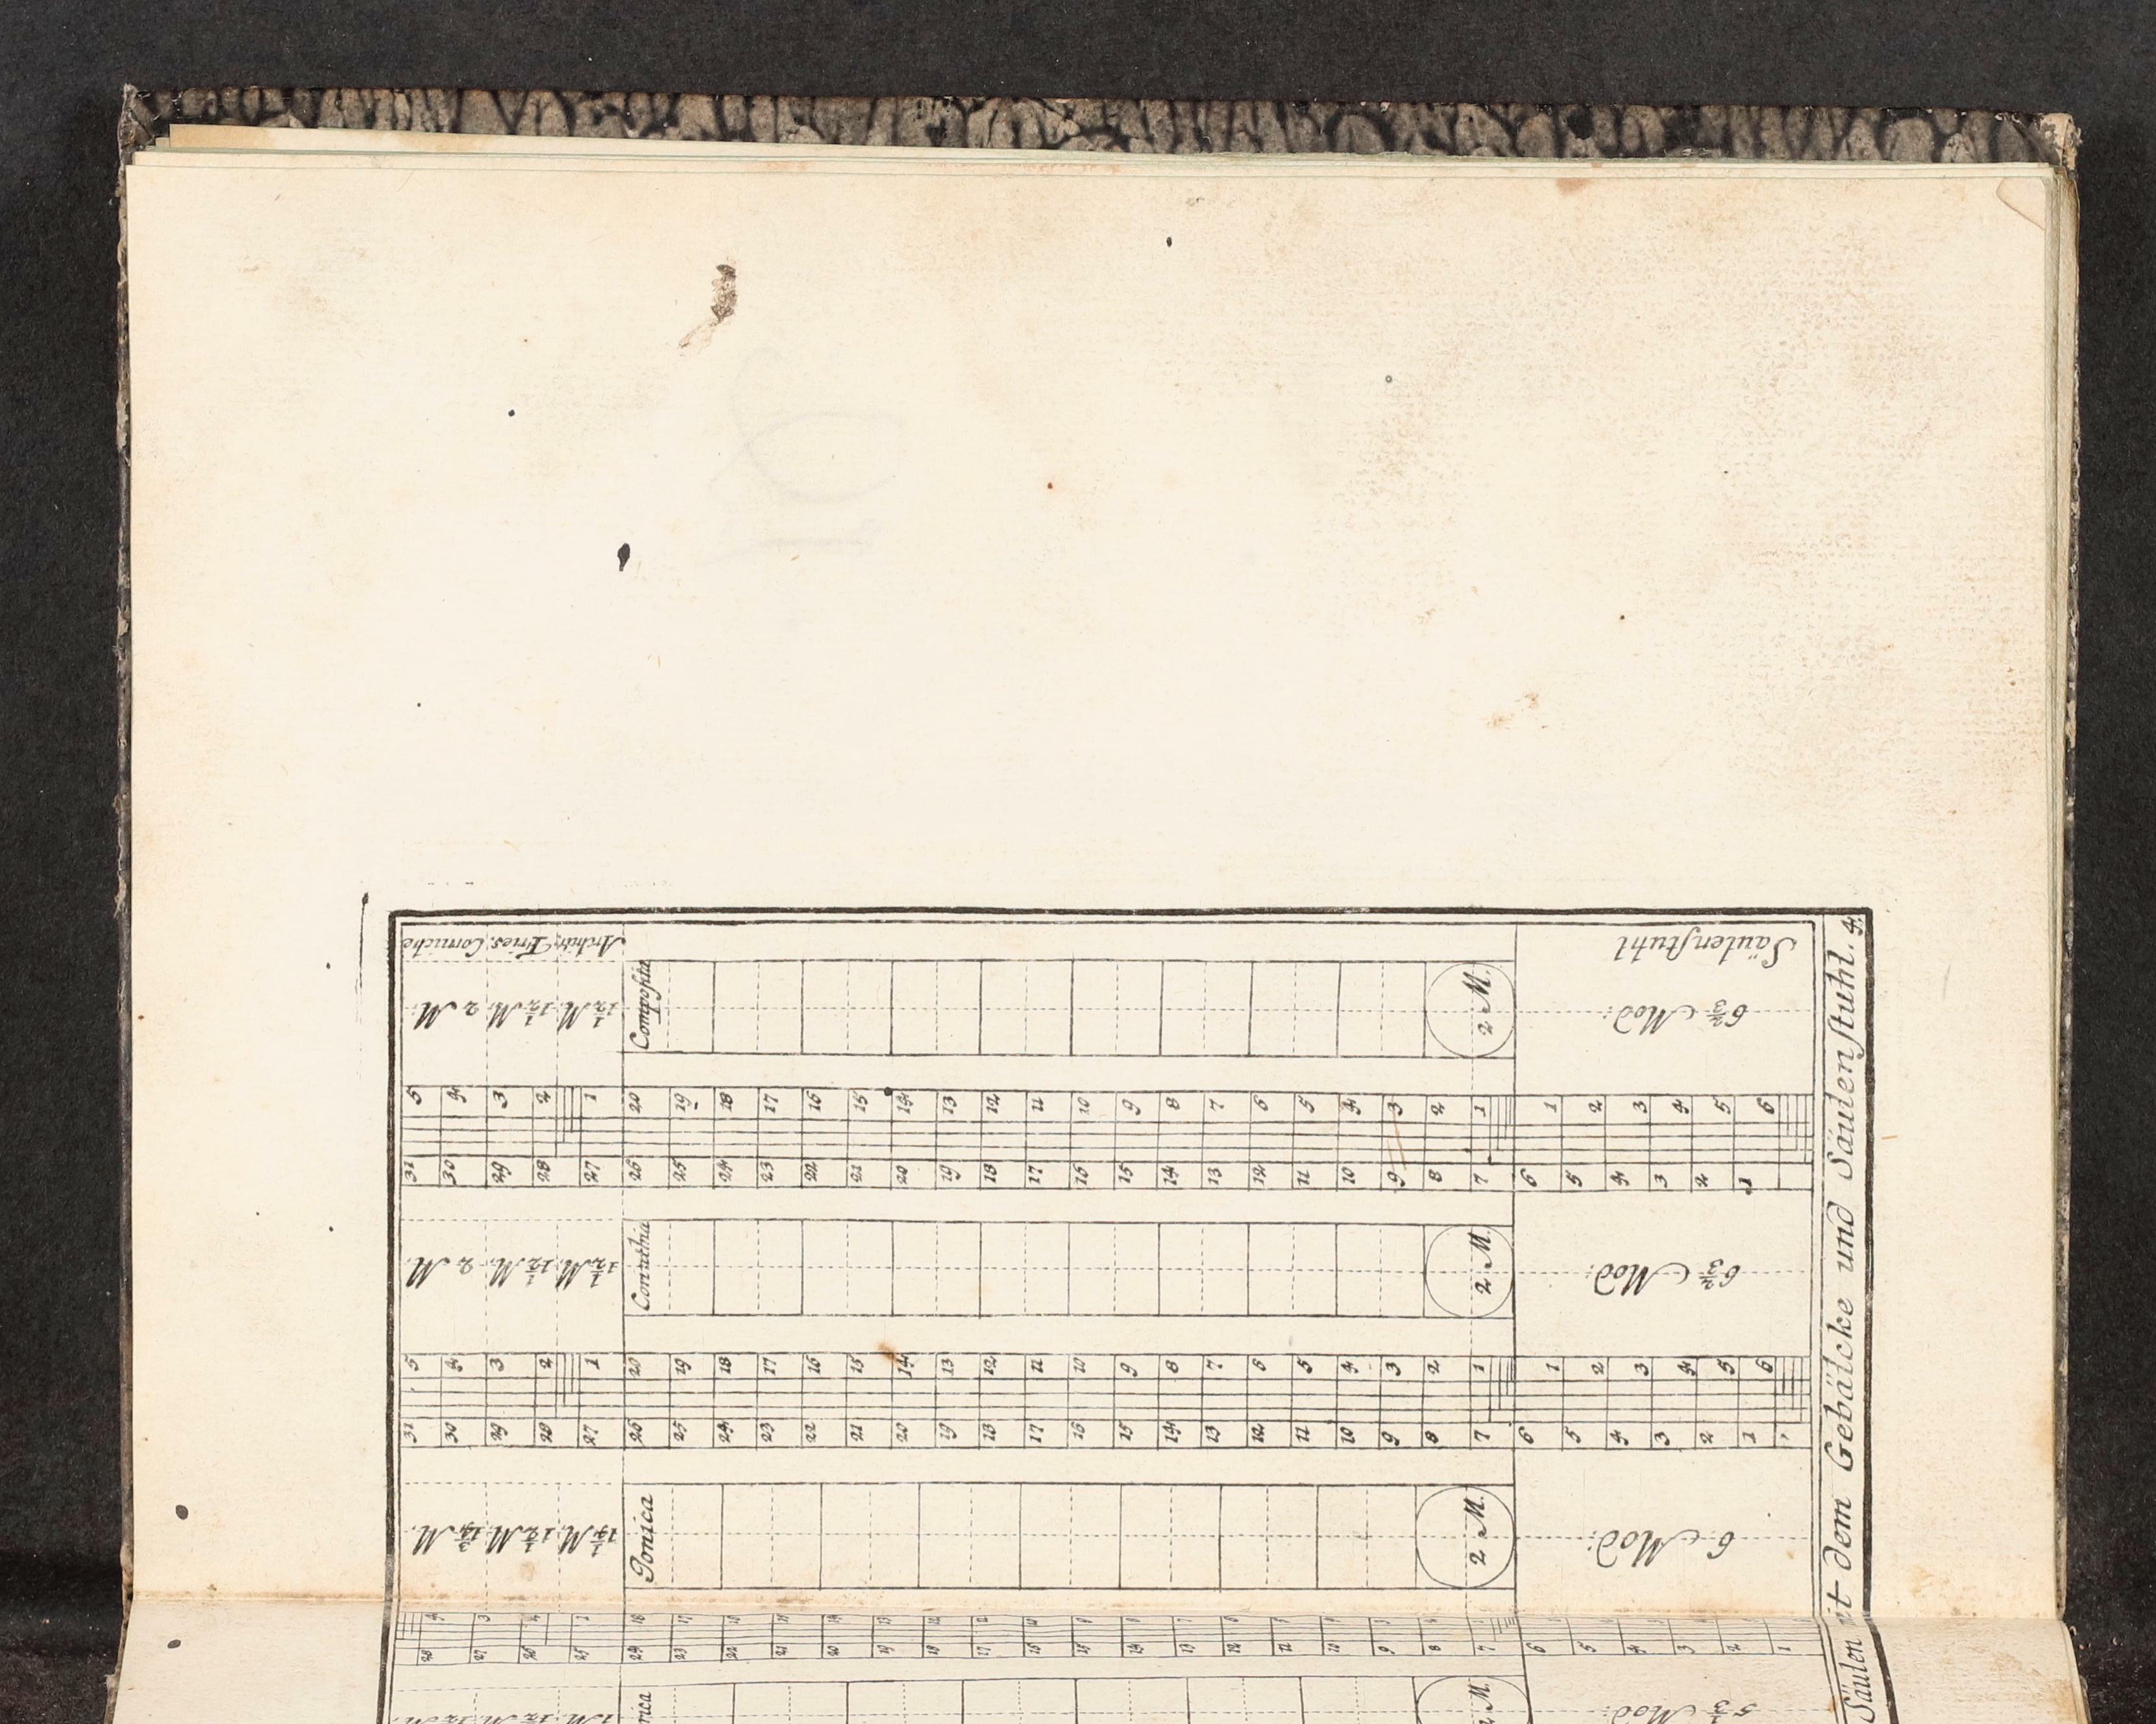 Säulen mit dem Gebälcke und Säulenstuhl. 4.
Architr. Fries. Corniche
Säulenstuhl
Composita
1½ M. 1½ M. 2 M.
2 M.
6⅔ Mod:
5 4 3 2 1 20 19 18 17 16 15 14 13 12 11 10 9 8 7 6 5 4 3 2 1 1 2 3 4 5 6
31 30 29 28 27 26 25 24 23 22 21 20 19 18 17 16 15 14 13 12 11 10 9 8 7 6 5 4 3 2 1
Corinthia
1½ M. 1½ M. 2 M.
2 M.
6⅔ Mod:
5 4 3 2 1 20 19 18 17 16 15 14 13 12 11 10 9 8 7 6 5 4 3 2 1 1 2 3 4 5 6
31 30 29 28 27 26 25 24 23 22 21 20 19 18 17 16 15 14 13 12 11 10 9 8 7 6 5 4 3 2 1
Jonica
1¼ M. 1½ M. 1¾ M.
2 M.
6 Mod:
28 27 26 25 24 23 22 21 20 19 18 17 16 15 14 13 12 11 10 9 8 7 6 5 4 3 2 1
rica
2 M.
5⅓ Mod: